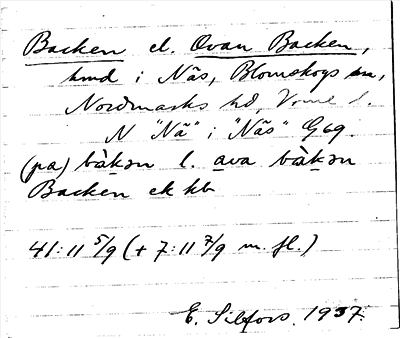 Backen el. Ovan Backen,
hmd i Näs, Blomskogs sn,
Nordmarks hd, Värml.
N "Nä" i "Näs" G69.
(pa) bàkən l. ava bàkən
Backen ek kb
41:11 5/9 (+ 7:11 7/9 m. fl.)
E. Silfors. 1937.